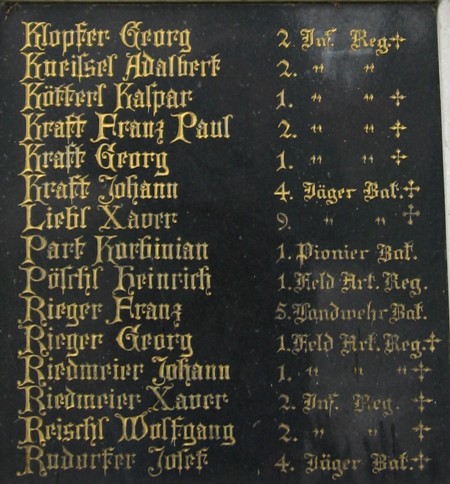 Klopfer Georg 2. Inf. Reg. ✝
Kneissel Adalbert 2. " "
Kötterl Kaspar 1. " " ✝
Kraft Franz Paul 2. " " ✝
Kraft Georg 1. " " ✝
Kraft Johann 4. Jäger Bat. ✝
Liebl Xaver 9. " " ✝
Part Korbinian 1. Pionier Bat.
Pöschl Heinrich 1. Feld Art. Reg.
Rieger Franz 5. Landwehr Bat.
Rieger Georg 1. Feld Art. Reg. ✝
Riedmeier Johann 1. " " " ✝
Riedmeier Xaver 2. Inf. Reg. ✝
Reischl Wolfgang 2. " " ✝
Rudorfer Josef 4. Jäger Bat. ✝